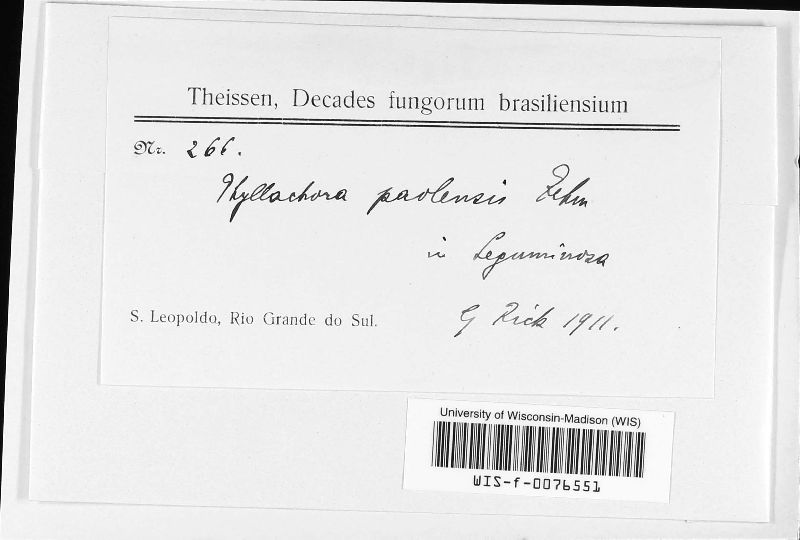 Theissen, Decades fungorum brasiliensium
Nr. 266.
Phyllachora paolensis Rehm
in Leguminosa
S. Leopoldo, Rio Grande do Sul.
G Rick 1911.
University of Wisconsin-Madison (WIS)
WIS-f-0076551